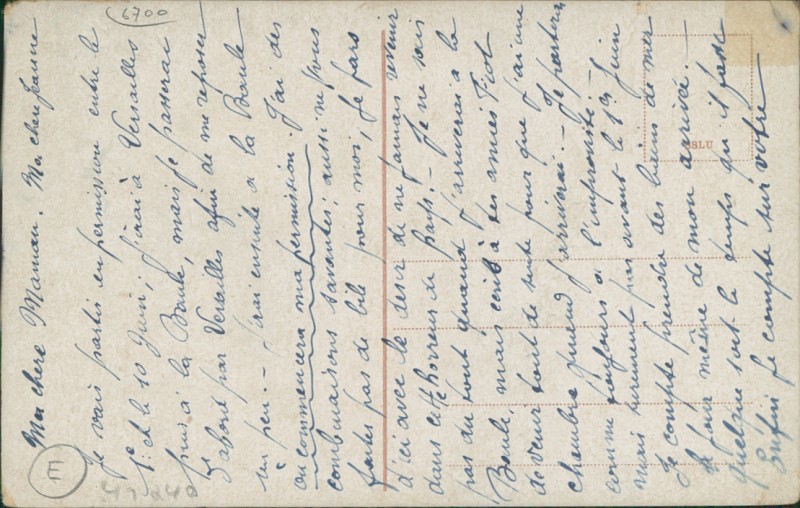 6700
Ma chère Maman. Ma chère Jeanne
Je vais partir en permission entre le
1er et le 10 Juin, j'irai à Versailles
puis à la Baule, mais je passerai
d'abord par Versailles afin de me reposer
un peu. — J'irai ensuite à la Baule
ou commencera ma permission. J'ai des
combinaisons savantes; aussi ne vous
faites pas de bile pour moi, je pars
d'ici avec le désir de ne jamais revenir
dans cette horreur de pays. — Je ne sais
pas du tout quand j'arriverai à la
Baule, mais écris à tes amies Ticot
de venir tout de suite pour que j'aie une
chambre quand j'arriverai. — Je partirai
comme toujours à l'improviste. —
mais surement pas avant le 1er Juin
Je compte prendre des bains de mer
le jour même de mon arrivée. —
quelque soit le temps qu'il fasse
Enfin je compte sur votre
E
SLU